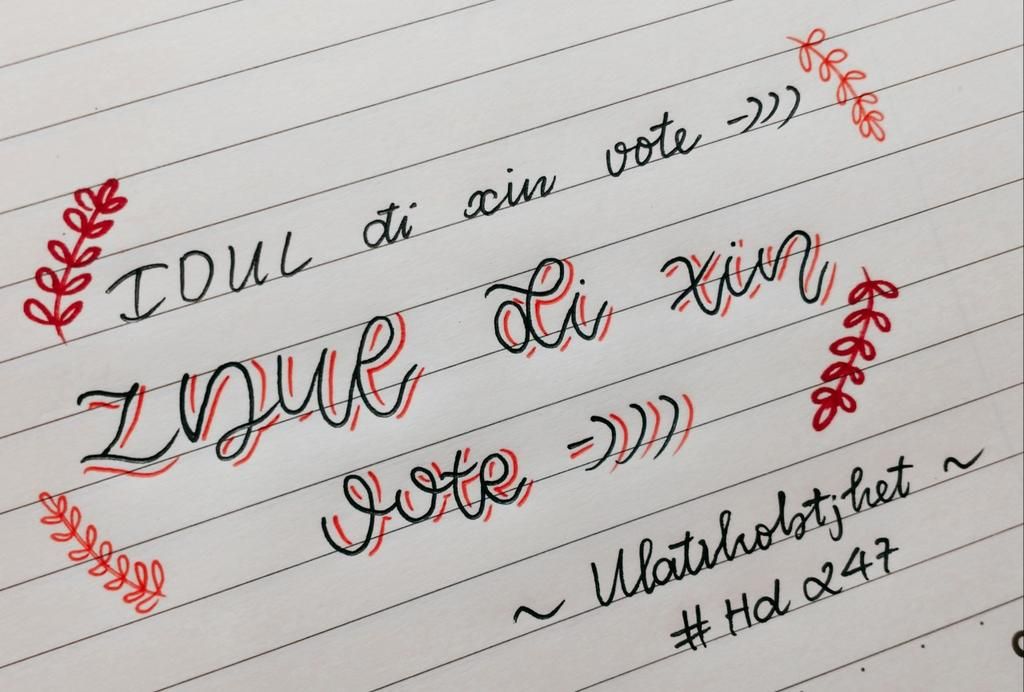 IDUL đi xin vote -)))
IDUL đi xin
vote =))))
~ Ulatrhobtjhet ~
# Hd 247